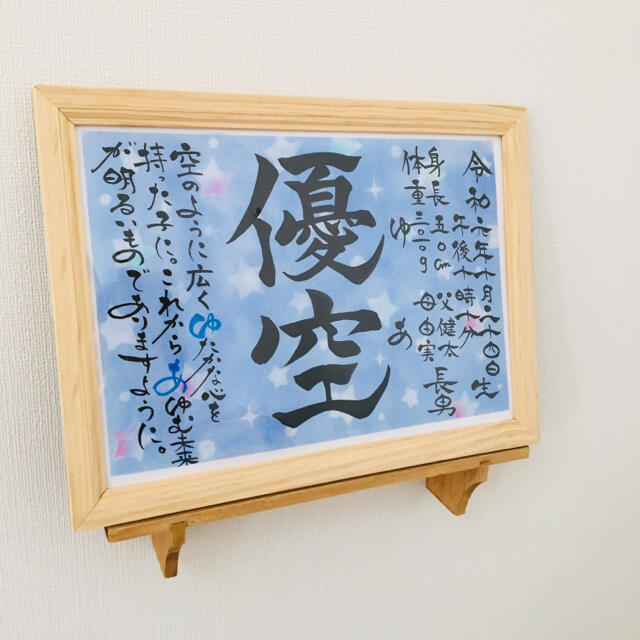 令和元年十月二十四日生
午後十時十分
身長 五〇cm 父健太 長男
体重 母由実
ゆ あ
優空
空のように広くゆたかな心を
持った子に。これからあゆむ未来
が明るいものでありますように。